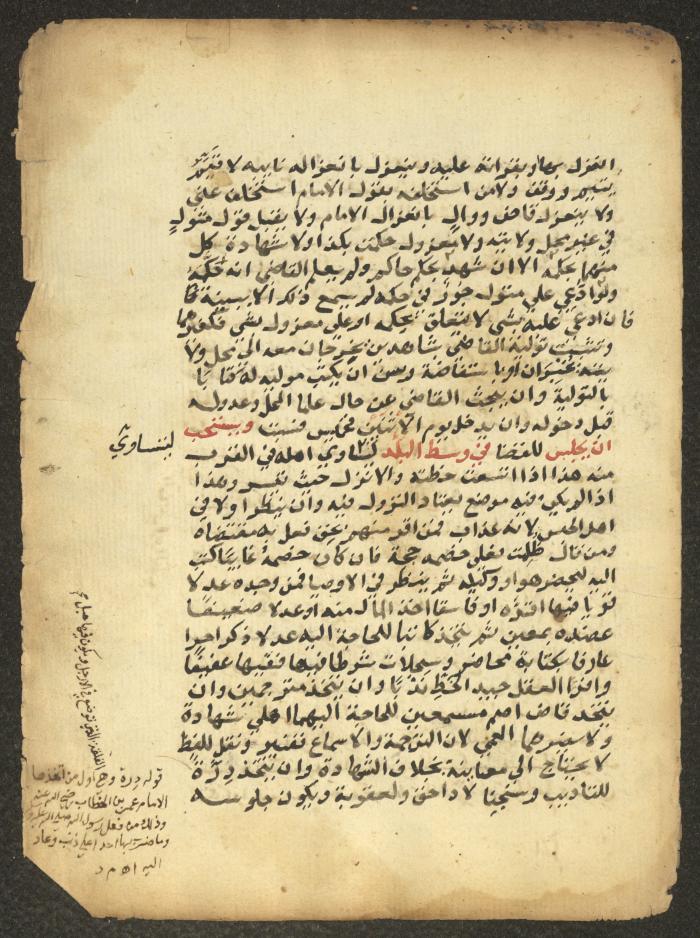 انعزل بها وبقراته عليه وينعزل بانعزاله نايبه لا قيم
يتيم ووقف ولا من استخلفه بقول الامام استخلف عني
ولا ينعزل قاض ووال بانعزال الامام ولا يقبل قول متول
في غير محل ولايته ولا معزول حكمت بكذا ولا شهادة كل
منهما بحكمه الا ان شهد بحكم حاكم ولم يعلم القاضي انه حكمه
ولو ادعي علي متول جور في حكمه لم يسمع ذلك الا ببينة
فان ادعي عليه بشي لا يتعلق بحكمه او علي معزول بشي فكغيرهما
وتثبت تولية القاضي بشاهدين يخرجان معه الي محل ولا
يته يخبران او باستفاضة وسن ان يكتب موليه له كتابا
بالتولية وان يبحث القاضي عن حال علما المحل وعدوله
قبل دخوله وان يدخل يوم الاثنين فخميس فسبت ويستحب
ان يجلس للقضا في وسط البلد ليتساوي اهله في القرب
منه هذا اذا اتسعت خطته والا نزل حيث تيسر وهذا
اذا لم يكن فيه موضع يعتاد النزول فيه وان ينظر اولا في
اهل الحبس لانه عذاب فمن اقر منهم بحق فعل به مقتضاه
ومن قال ظلمت فعلي خصمه حجة فان كان خصمه غايبا كتب
اليه ليحضر هو او وكيله ثم ينظر في الاوصيا فمن وجده عدلا
قويا فيها اقره او فاسقا اخذ المال منه او عدلا ضعيفا
عضده بمعين ثم يتخذ كاتبا للحاجة اليه عدلا ذكرا حرا
عارفا بكتابة محاضر وسجلات شرطا فيها فقيها عفيفا
وافر العقل جيد الخط ندبا وان يتخذ مترجمين وان
يتخذ قاض اصم مسمعين للحاجة اليهما اهلي شهادة
ولا يضرهما العمي لان الترجمة والاسماع تفسير ونقل للفظ
لا يحتاج الي معاينة بخلاف الشهادة وان يتخذ درة
للتاديب وسجنا لاداحق ولعقوبة ويكون جلوسه
ليتساوي
قوله درة وهو اول من اتخذها
الامام عمر بن الخطاب رضي الله عنه
وما ضرب بها احدا علي ذنب وعاد
اليه اه م د